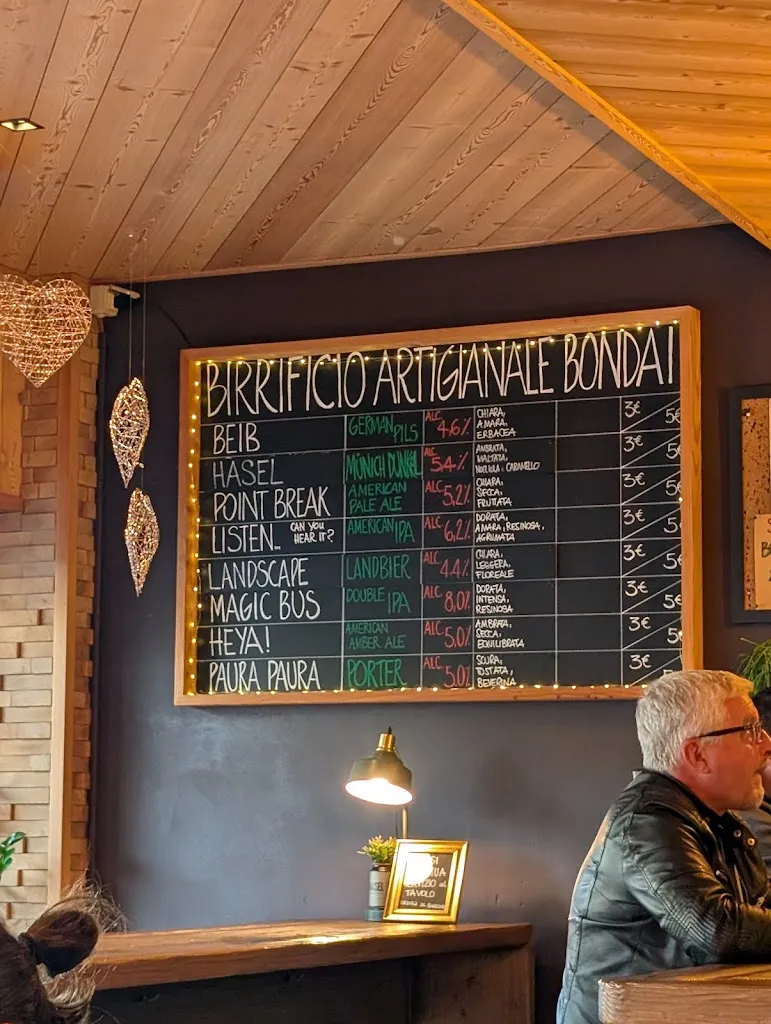 BIRRIFICIO ARTIGIANALE BONDAI
BEIB GERMAN PILS ALC 4,6% CHIARA, AMARA, ERBACEA 3€ 5€
HASEL MÜNICH DUNKEL ALC 5,4% AMBRATA, MALTATA, NOCCIOLA, CARAMELLO 3€ 5€
POINT BREAK AMERICAN PALE ALE ALC 5,2% CHIARA, SECCA, FRUTTATA 3€ 5€
LISTEN... CAN YOU HEAR IT? AMERICAN IPA ALC 6,2% DORATA, AMARA, RESINOSA, AGRUMATA 3€ 5
LANDSCAPE LANDBIER ALC 4,4% CHIARA, LEGGERA, FLOREALE 3€ 5€
MAGIC BUS DOUBLE IPA ALC 8,0% DORATA, INTENSA, RESINOSA 3€ 5€
HEYA! AMERICAN AMBER ALE ALC 5,0% AMBRATA, SECCA, EQUILIBRATA 3€ 5
PAURA PAURA PORTER ALC 5,0% SCURA, TOSTATA, BEVERINA 3€
TAVOLO